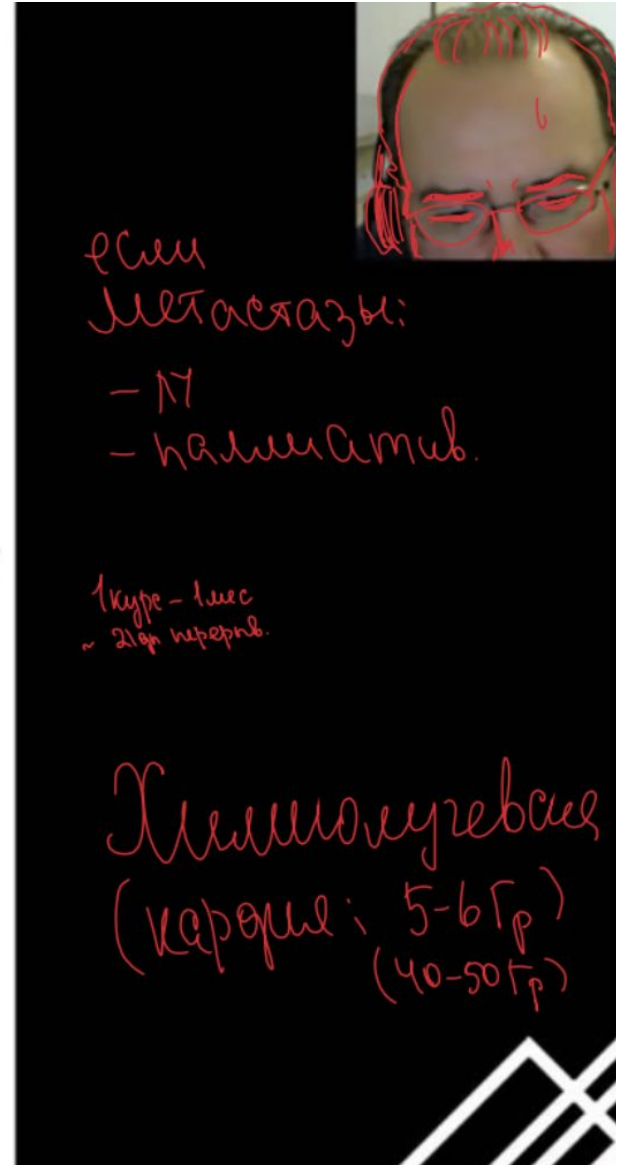 если
Метастазы:
- М
- паллиатив.
1 курс - 1 мес
~ 21 дн перерыв.
Химиолучевая
(кардия; 5-6 Гр)
(40-50 Гр)